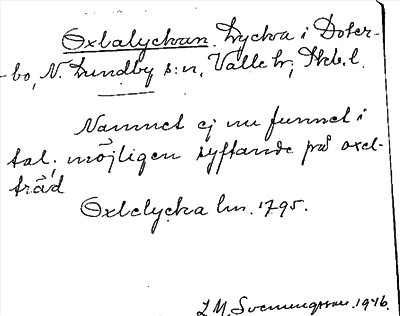 Oxbalyckan. Lycka i Doter-
bo, N. Lundby s:n, Valle hr, Skb. l.
Namnet ej nu funnet i
tal. möjligen syftande på oxel-
träd
Oxlelycka lm. 1795.
L M. Svenungsson. 1946.